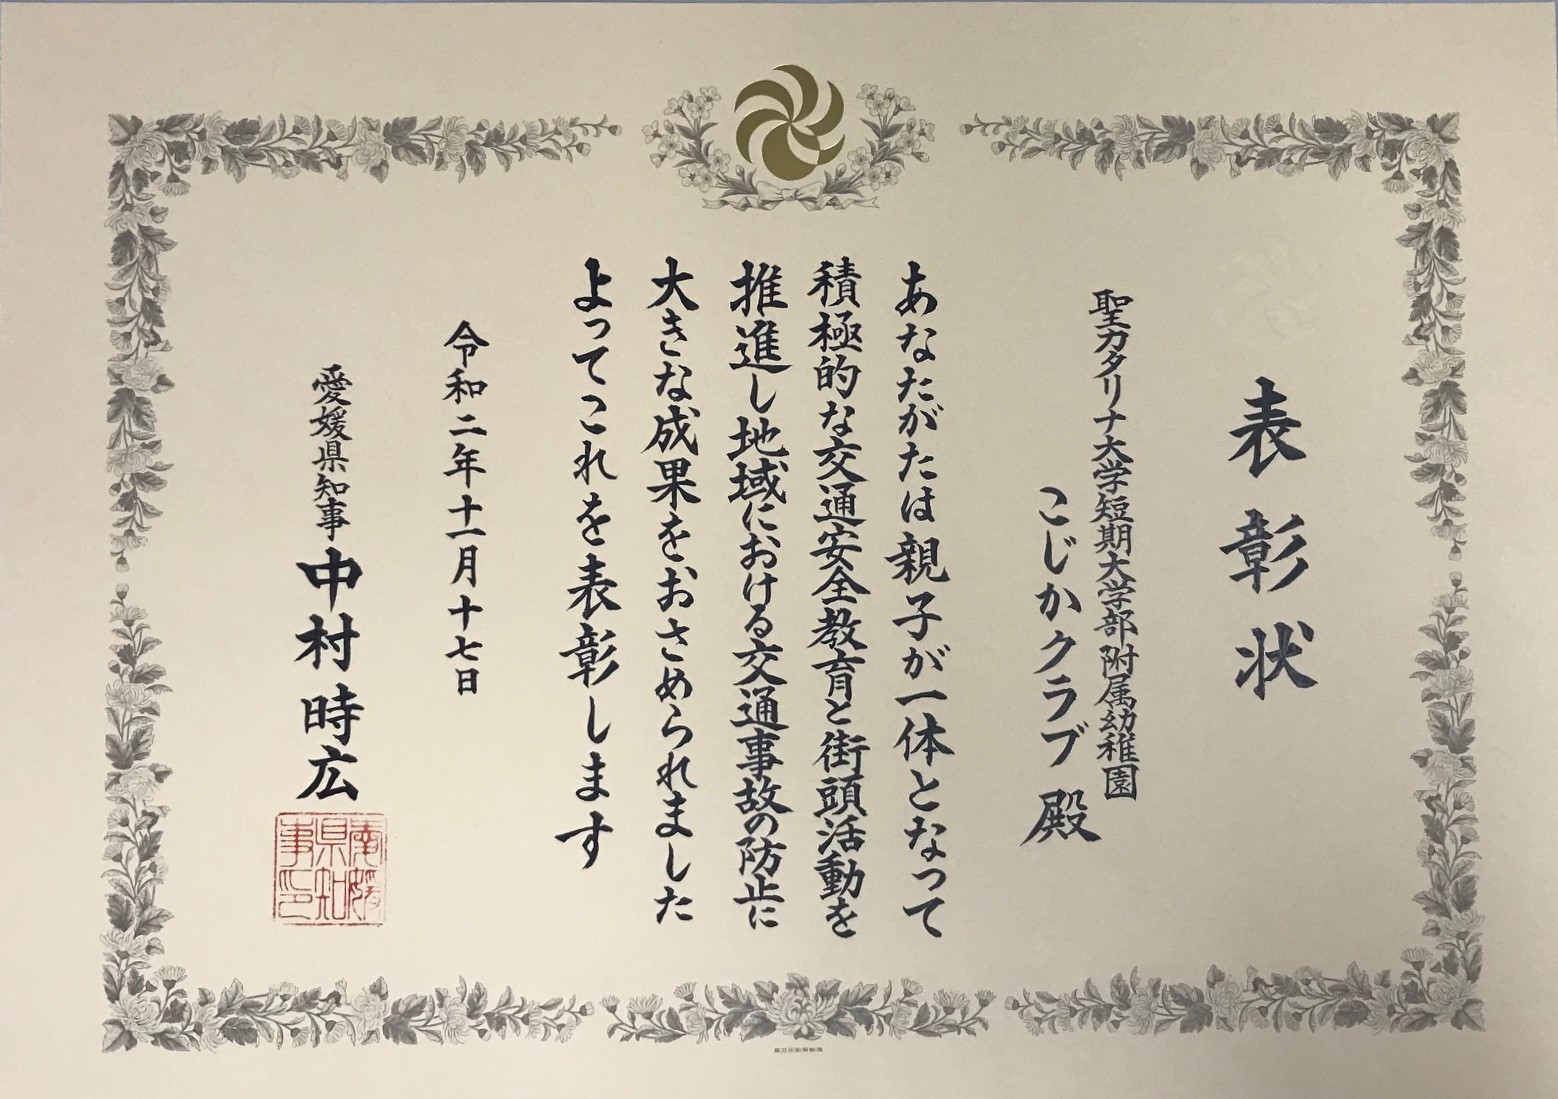 表彰状
聖カタリナ大学短期大学部附属幼稚園
こじかクラブ 殿
あなたがたは親子が一体となって
積極的な交通安全教育と街頭活動を
推進し地域における交通事故の防止に
大きな成果をおさめられました
よってこれを表彰します
令和二年十一月十七日
愛媛県知事 中村時広